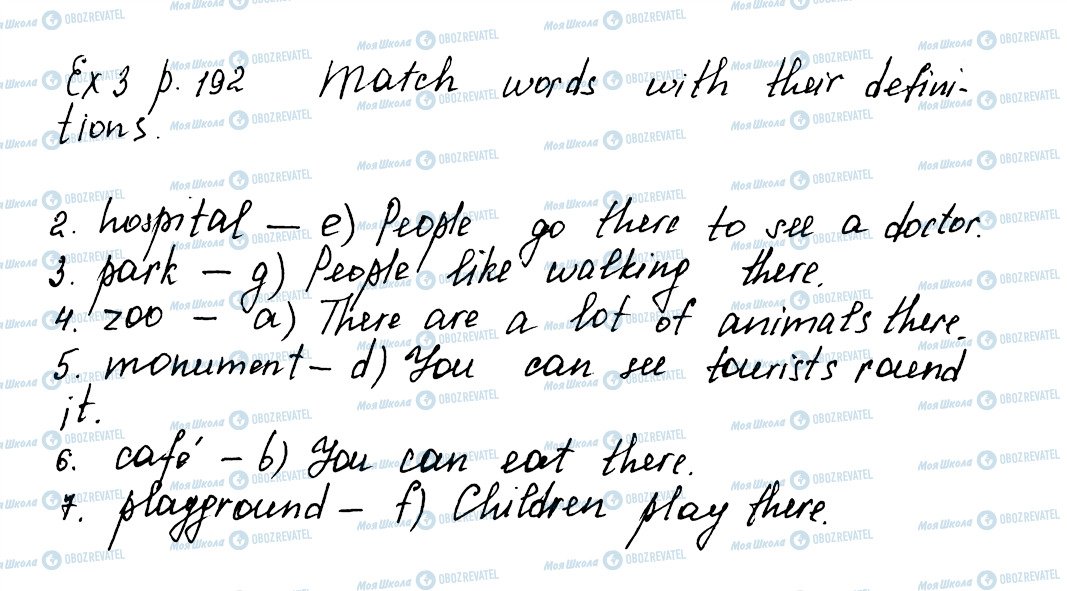 Ex 3 p. 192 Match words with their defini-
tions.
2. hospital — e) People go there to see a doctor.
3. park — g) People like walking there.
4. zoo — a) There are a lot of animals there.
5. monument — d) You can see tourists round
it.
6. café — b) You can eat there.
7. playground — f) Children play there.